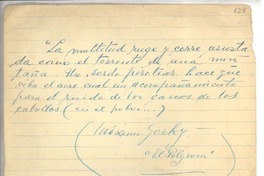 128
"La multitud ruge y corre asusta
da como el torrente de una mon
taña. Un sordo perotear hace que
vibre el aire cual un acompañamiento
para el ruido de los cascos de los
caballos (en el polvo...)
Máximo Gorky —
"El Peligroso"